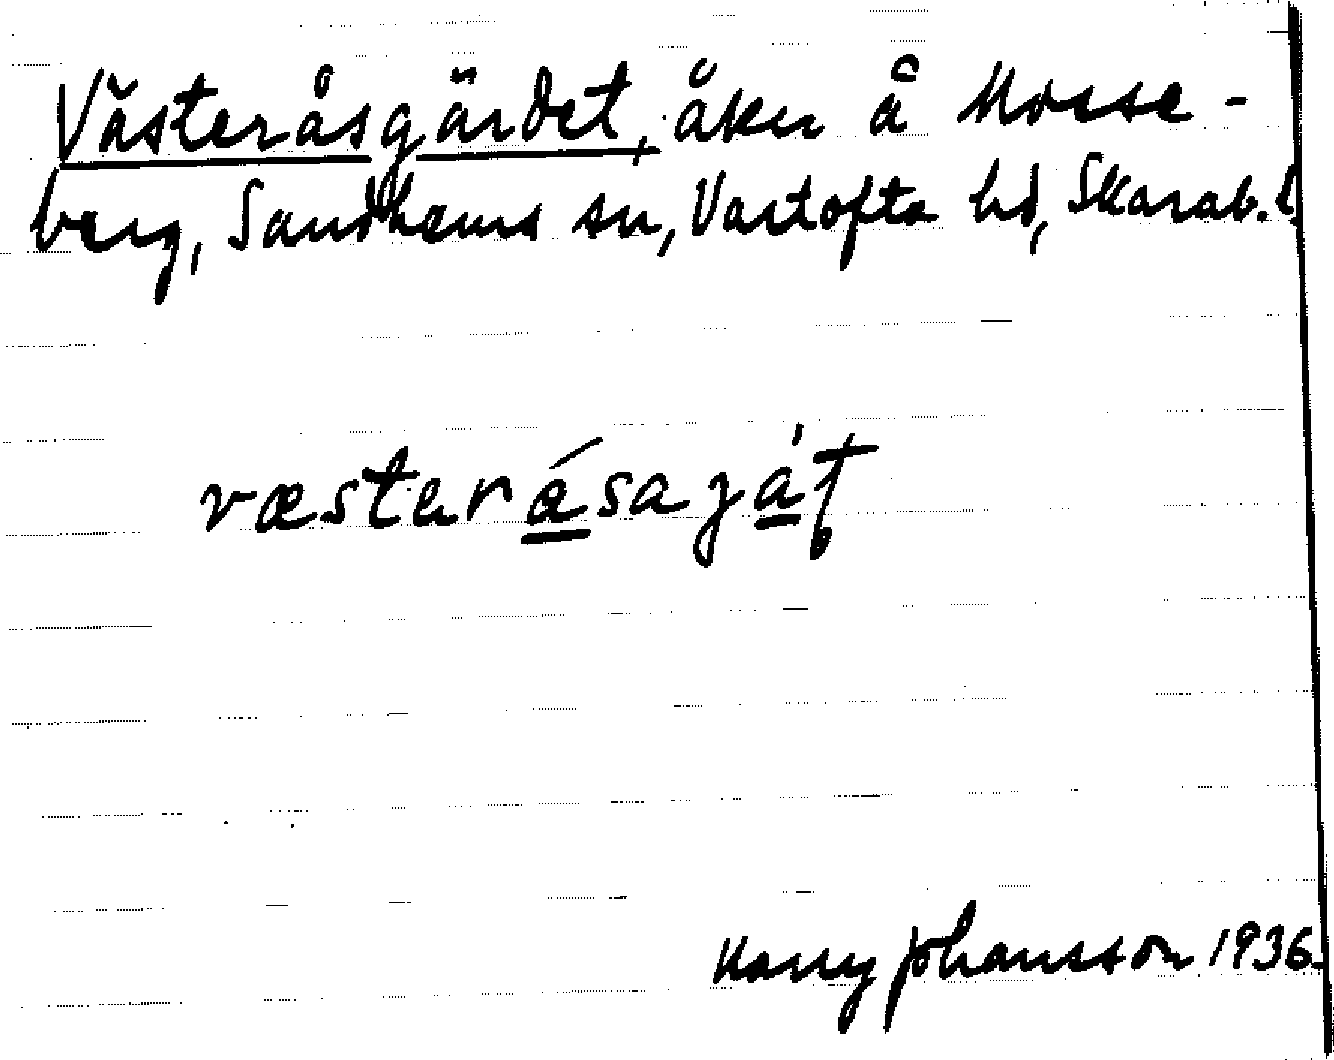 Västeråsgärdet, åker å Mosse-
berg, Sandhems sn, Vartofta hd, Skarab. l.
væsterásaját
Harry Johansson 1936.